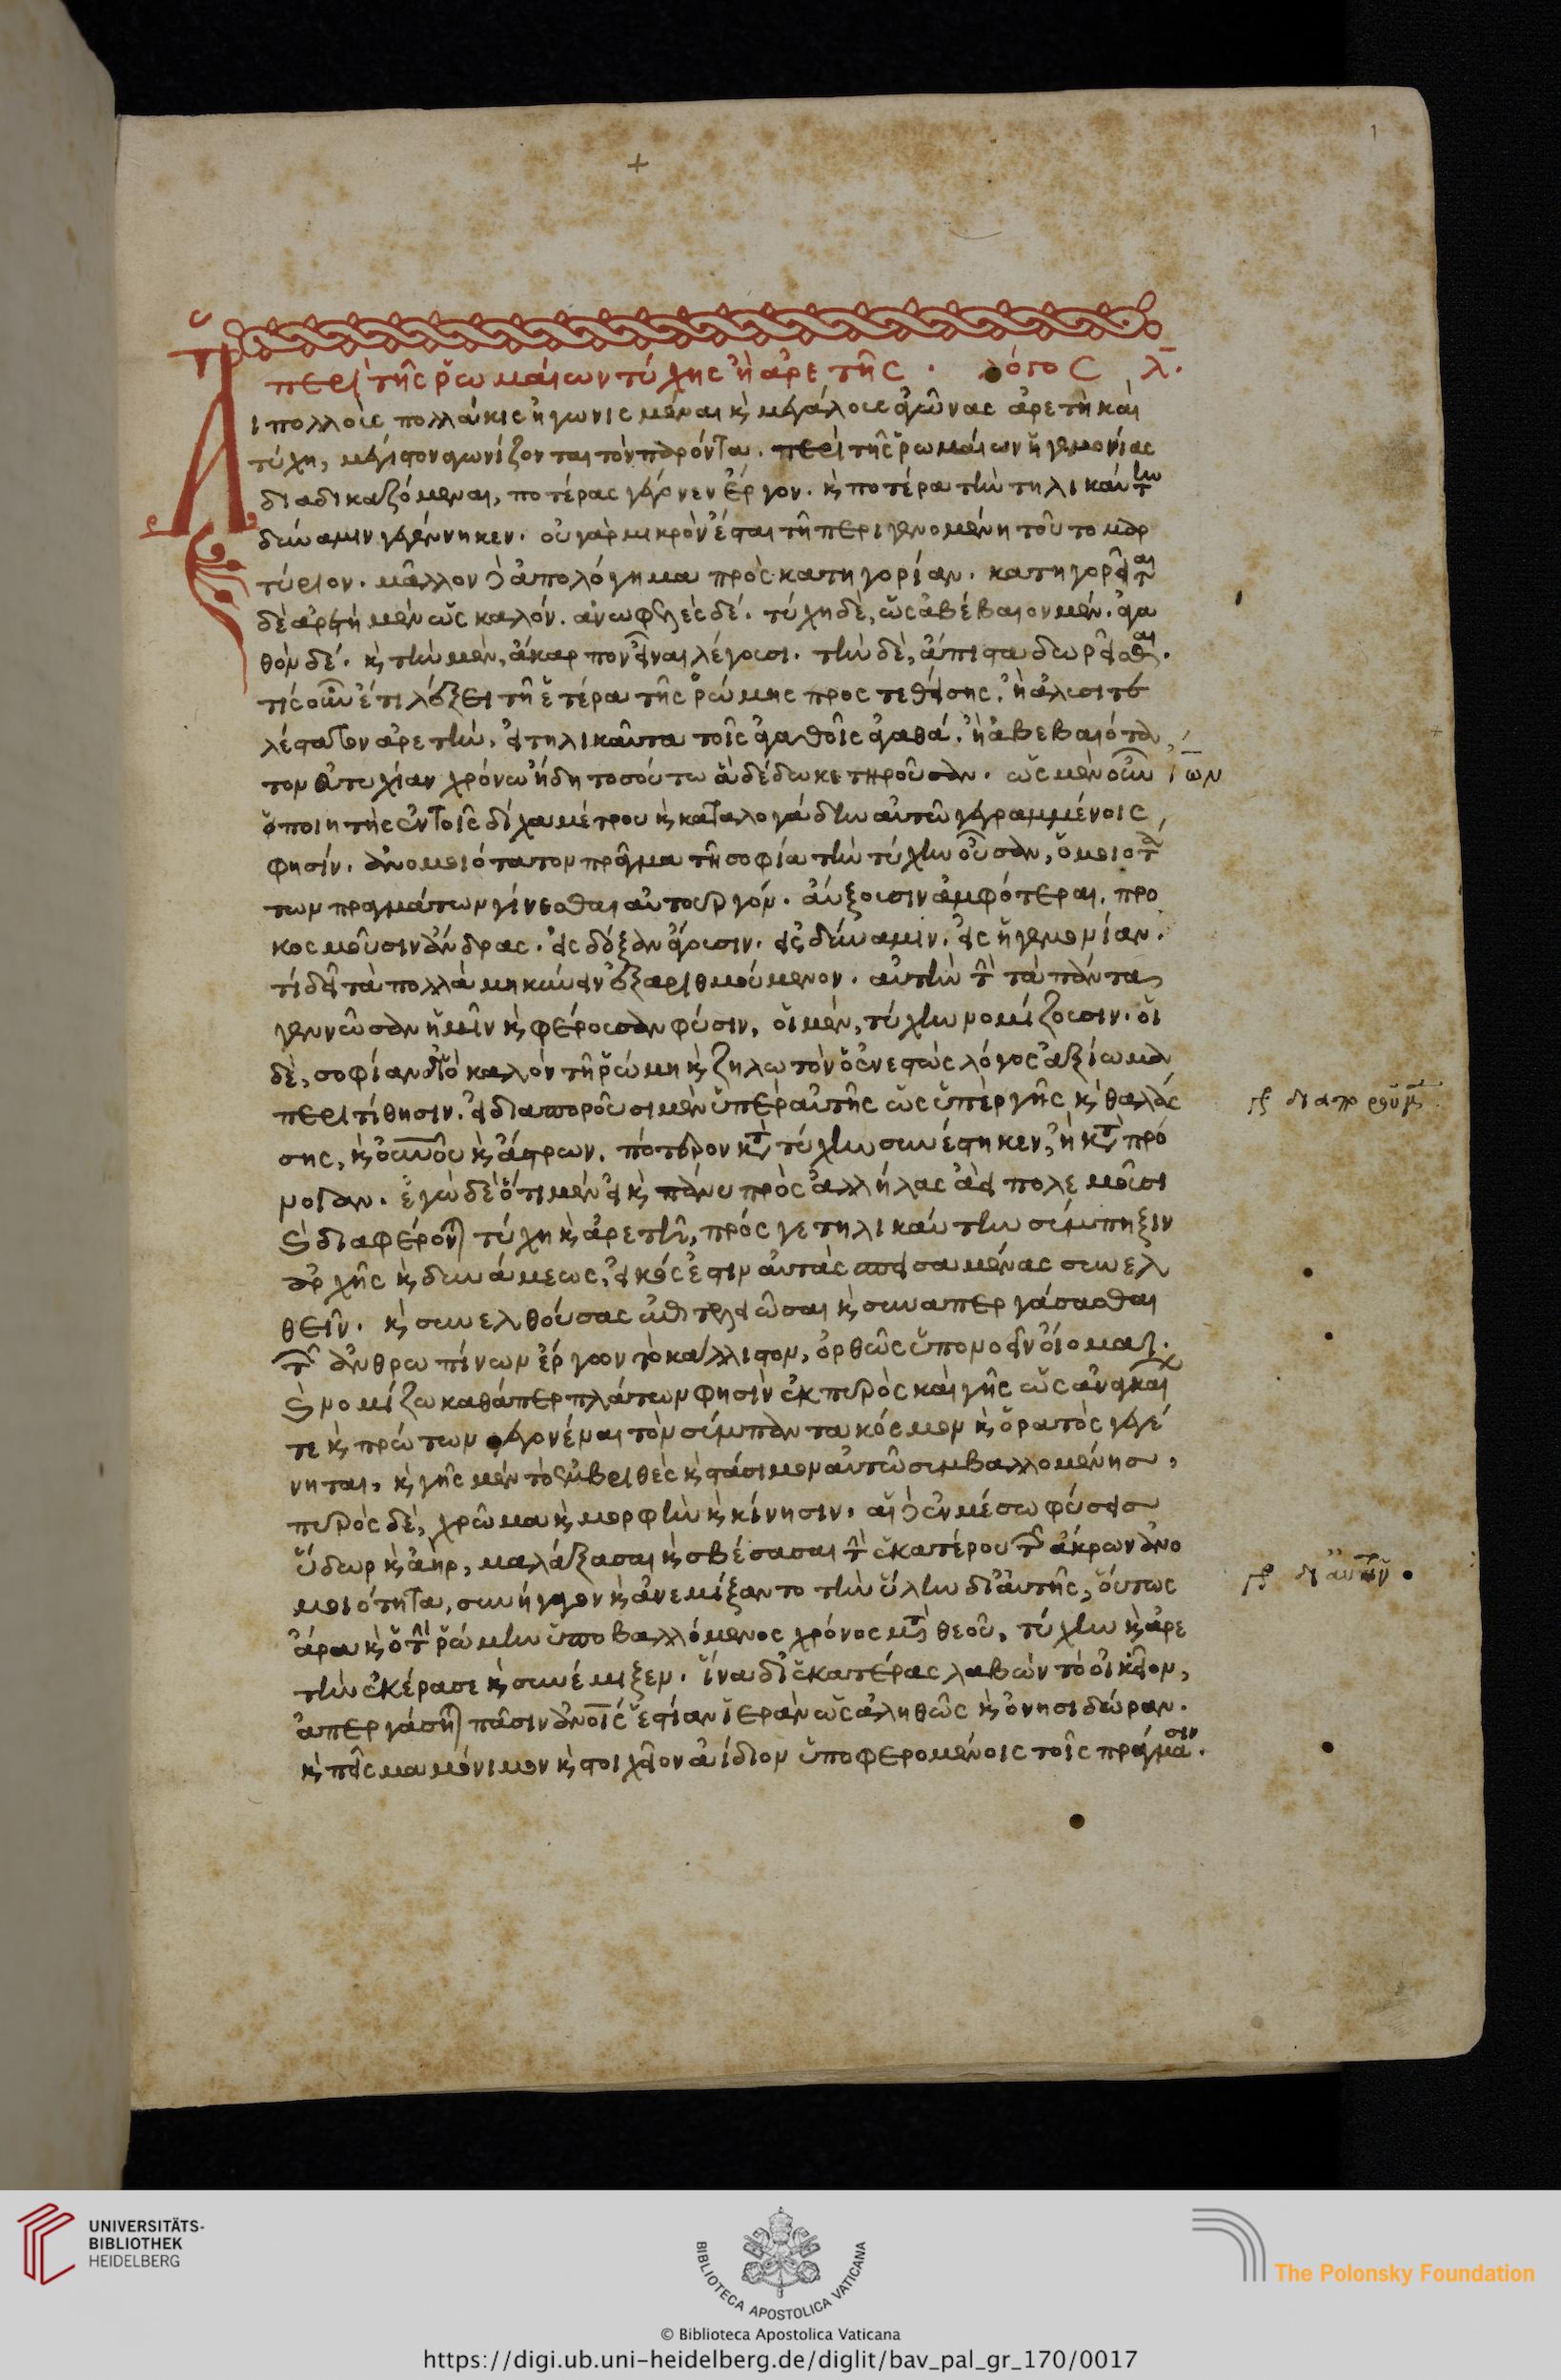 1
περὶ τῆς ῥωμαίων τύχης ἢ ἀρετῆς · λόγος λ.
Αἱ πολλοὶς πολλάκις ἠγωνισμέναι κ μεγάλους ἀγῶνας ἀρετὴ καὶ
τύχη, μέγιστον ἀγωνίζονται τὸν παρόντα. περὶ τῆς ῥωμαίων ἡγεμονίας
διαδικαζόμεναι, ποτέρας γέγονεν ἔργον. κ ποτέρα τὴν τηλικαύτην
δύναμιν γεγέννηκεν. οὐ γὰρ μικρὸν ἔσται τῆ περιγενομένη τοῦτο μαρ
τύριον. μᾶλλον δὲ ἀπολόγημα πρὸς κατηγορίαν. κατηγορεῖται
δὲ ἀρετὴ μὲν ὡς καλόν. ἀνωφελὲς δέ. τύχη δὲ, ὡς ἀβέβαιον μὲν. ἀγα
θὸν δέ. κ τὴν μὲν, ἄκαρπον εἶναι λέγουσι. τὴν δὲ, ἄπιστα δωρεῖσθαι.
τίς οὖν ἔτι λέξει τῆ ἑτέρα τῆς ῥώμης προστεθείσης, ἢ ἀλυσιτε
λέστατον ἀρετὴν, εἰ τηλικαῦτα τοῖς ἀγαθοῖς ἀγαθά. ἢ ἀβεβαιότα
τον εὐτυχίαν χρόνω ἤδη τοσούτω ἃ δέδωκε τηροῦσαν. ὡς μὲν οὖν ἴων
ὁ ποιητὴς ἐν τοῖς δίχα μέτρου κ καταλογάδην αὐτῶ γεγραμμένοις
φησίν. ἀνομοιότατον πρᾶγμα τῆ σοφία τὴν τύχην οὖσαν, ὁμοιοτά
των πραγμάτων γίνεσθαι αὐτουργόν. αὔξουσιν ἀμφότεραι. προσ
κοσμοῦσιν ἄνδρας. εἰς δόξαν ἄγουσιν. εἰς δύναμιν. εἰς ἡγεμονίαν.
τί δεῖ τὰ πολλὰ μηκύνειν ἐξαριθμούμενον. αὐτὴν τὴν τὰ πάντα
γεννῶσαν ἡμῖν κ φέρουσαν φύσιν, οἱ μὲν, τύχην νομίζουσιν. οἱ
δὲ, σοφίαν διὸ καλόν τῆ ῥώμη κ ζηλωτὸν ὁ ἐνεστὼς λόγος ἀξίωμα
περιτίθησιν. εἰ διαποροῦσι μὲν ὑπὲρ αὐτῆς ὡς ὑπὲρ γῆς κ θαλάσ
γρ διαπορουμεν
σης, κ οὐνοῦ κ ἄστρων. πότερον κατὰ τύχην συνέστηκεν, ἢ κατὰ πρό
νοιαν. ἐγὼ δὲ ὅτι μὲν εἰ κ πάνυ πρὸς ἀλλήλας ἀεὶ πολεμοῦσι
κ διαφέρονται τύχη κ ἀρετὴ, πρός γε τηλικαύτην σύμπηξιν
ἀρχῆς κ δυνάμεως, εἰκός ἐστιν αὐτὰς σπεισαμένας συνελ
θεῖν. κ συνελθούσας ἐπιτελειῶσαι κ συναπεργάσασθαι
τῶν ἀνθρωπίνων ἔργων τὸ κάλλιστον, ὀρθῶς ὑπονοεῖν οἴομαι.
κ νομίζω καθάπερ πλάτων φησὶν ἐκ πυρὸς καὶ γῆς ὡς ἀναγκαί
τε κ πρώτων γεγονέναι τὸν σύμπαντα κόσμον κ ὁρατὸς γεγέ
νηται, κ γῆς μὲν τὸ ἐμβριθὲς κ στάσιμον αὐτῶ συμβαλλομένης,
πυρὸς δὲ, χρῶμα κ μορφὴν κ κίνησιν. αἱ δὲ ἐν μέσω φύσεις
ὕδωρ κ ἀὴρ, μαλάξασαι κ σβέσασαι τὴν ἑκατέρου τῶν ἄκρων ἀνο
μοιότητα, συνήγαγον κ ἀνεμίξαντο τὴν ὕλην δι' αὐτῆς, οὕτως
γρ δι' αὐτῶν
ἄρα κ ὁ τὴν ῥώμην ὑποβαλλόμενος χρόνος μετὰ θεοῦ, τύχην κ ἀρε
τὴν ἐκέρασε κ συνέμιξεν. ἵνα δι' ἑκατέρας λαβὼν τὸ οἰκεῖον,
ἀπεργάσηται πᾶσιν ἀνοις ἑστίαν ἱερὰν ὡς ἀληθῶς κ ὀνησιδώραν.
κ πεῖσμα μόνιμον κ στοιχεῖον ἀΐδιον ὑποφερομένοις τοῖς πράγμασιν.
UNIVERSITÄTS-
BIBLIOTHEK
HEIDELBERG
BIBLIOTECA APOSTOLICA VATICANA
The Polonsky Foundation
© Biblioteca Apostolica Vaticana
https://digi.ub.uni-heidelberg.de/diglit/bav_pal_gr_170/0017